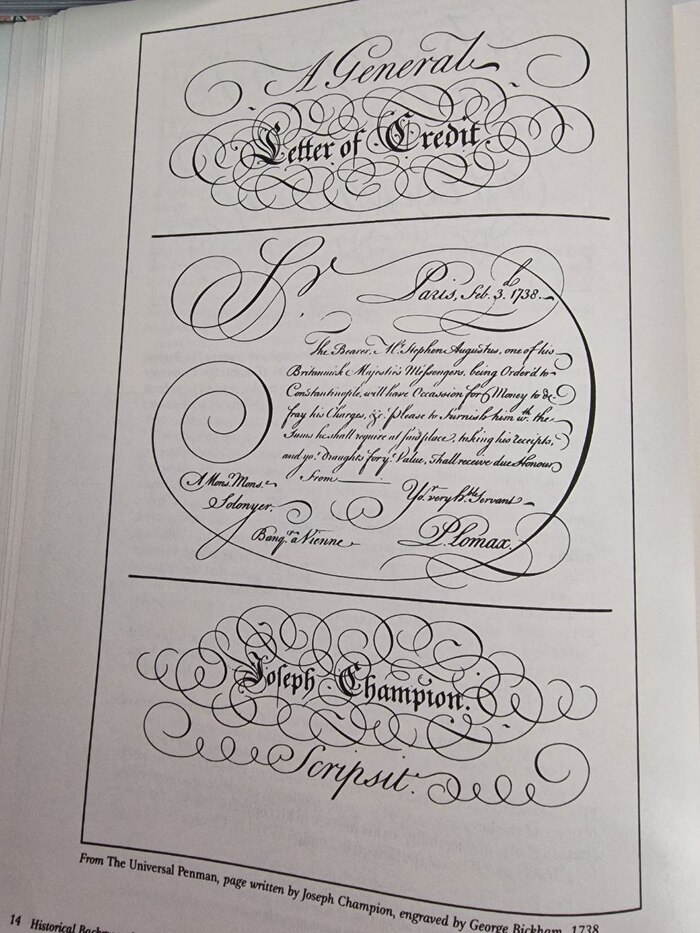 A General
Letter of Credit.
Sr
Paris, Feb. 3.d 1738.
The Bearer, Mr. Stephen Augustus, one of his
Britannick Majesties Messengers, being Order'd to
Constantinople, will have Occassion for Money to de
fray his Charges, &c. Please to Furnish him wth. the
Sums he shall require at said place, taking his Receipts,
and yor. Draughts for ye. Value, Shall receive due Honour
From
A Monsr. Mons.
Yor. very hble Servant
Solonyer.
Banqr. a Vienne
P. Lomax.
Joseph Champion.
Scripsit.
From The Universal Penman, page written by Joseph Champion, engraved by George Bickham, 1738
14 Historical